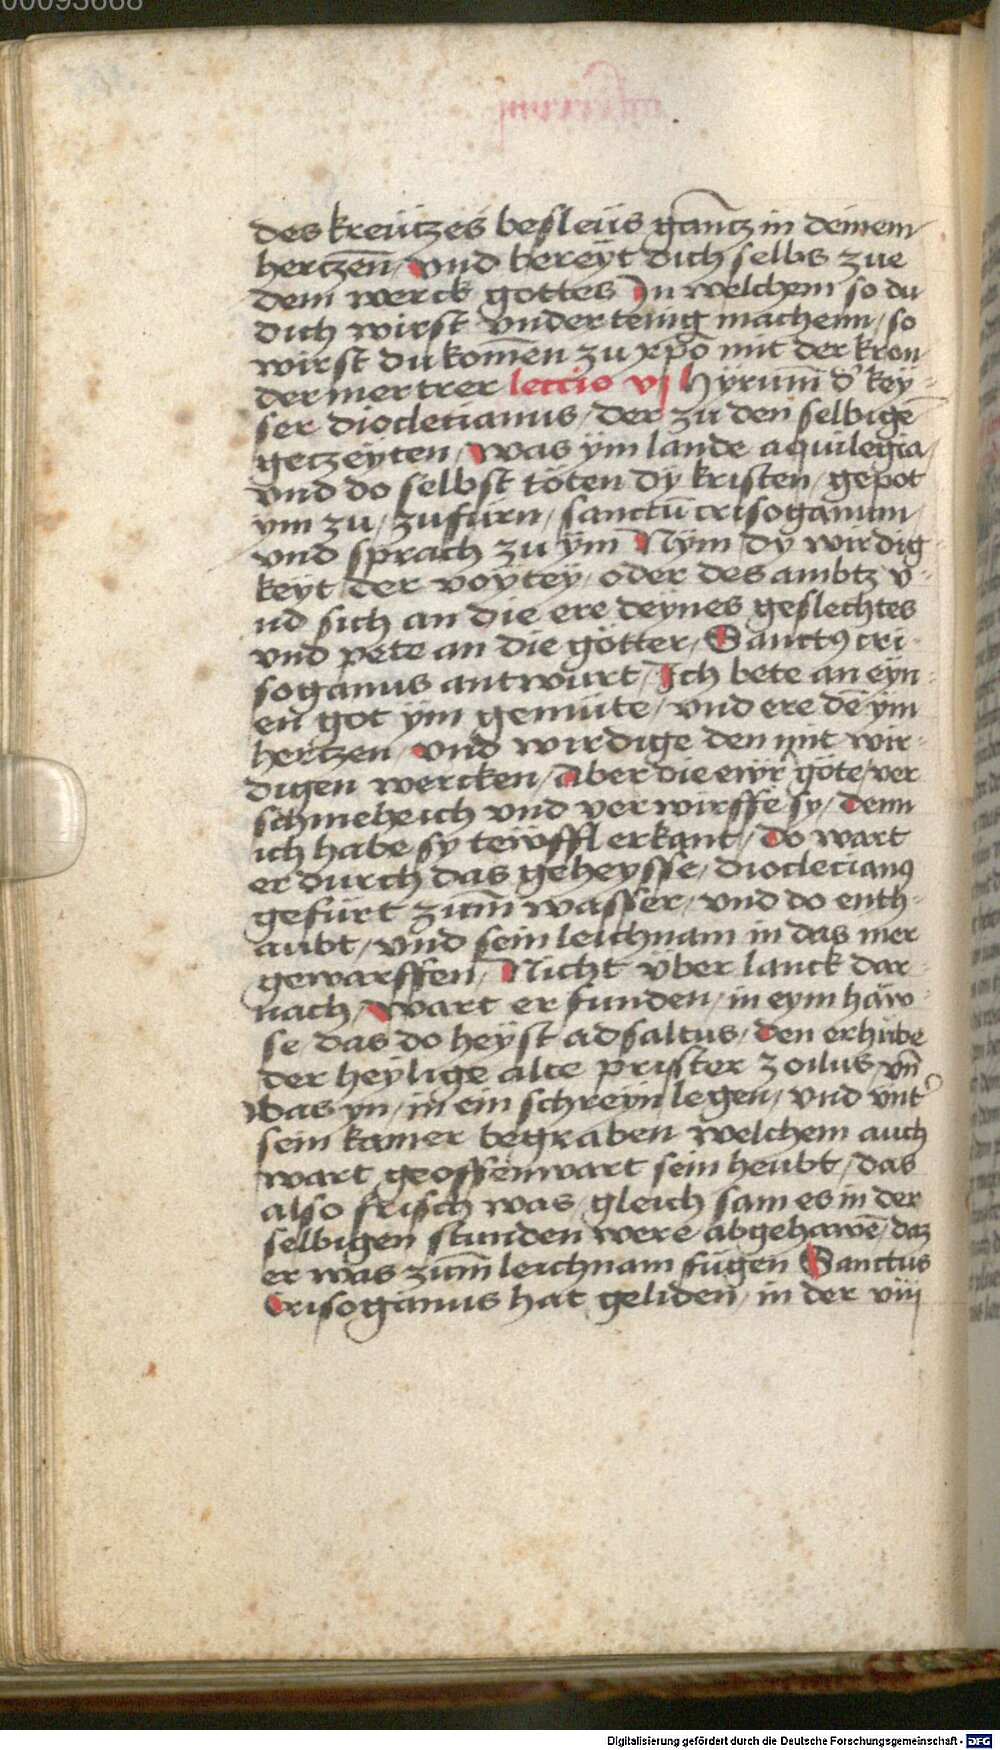 00093668
des kreützes besleüs gantz in deinem
hertzen̄ / vnd bereÿt dich selbs zue
dem werck gottes In welchem so du
dich wirst vnderteinig machenn / so
wirst du kom̄en zu xp̄o mit der kron
der mertrer lectio vj Hyrum̄ d' keÿ-
ser diocletianus / der zu den selbigē
getzeÿten / Was ÿm lande aquilegia /
vnd do selbst töten dÿ kristen / gepot
ym zu / zufürn / sanctū crisoganum /
vnd sprach zu ÿm Nÿm dÿ wirdig-
keÿt der voÿteÿ / oder des ambtz v-
nd sich an die ere deÿnes geslechtes
vnd pete an die götter / Sanctꝰ cri-
soganus antwurt / Ich bete an eÿn-
en got ÿm gemüte / vnd ere dē ÿm
hertzen / vnd wirdige den mit wir-
digen wercken / aber die ewr göte / ver
schmehe ich vnd verwirffe sy / denn
ich habe sy tewffl erkant / do wart
er durch das geheysse / diocletianꝰ
gefürt zum̄ wasser / vnd do enth-
aubt / vnd sein leichnam in das mer
gewarffen / Nicht über lanck dar-
nach / Wart er funden / in eym haw-
se das do heÿst adsaltus / den erhube
der heÿlige alte prister zoilus vn̄
was yn / in ein schreÿn legen / vnd vnt'
sein kamer begraben welchem auch
wart geoffenwart sein heubt / das
also frisch was / gleich sam es in der
selbigen stunden were abgehawē / daz
er was zum̄ leichnam fügen Sanctus
Crisoganus hat geliden / in der viij
Digitalisierung gefördert durch die Deutsche Forschungsgemeinschaft - DFG